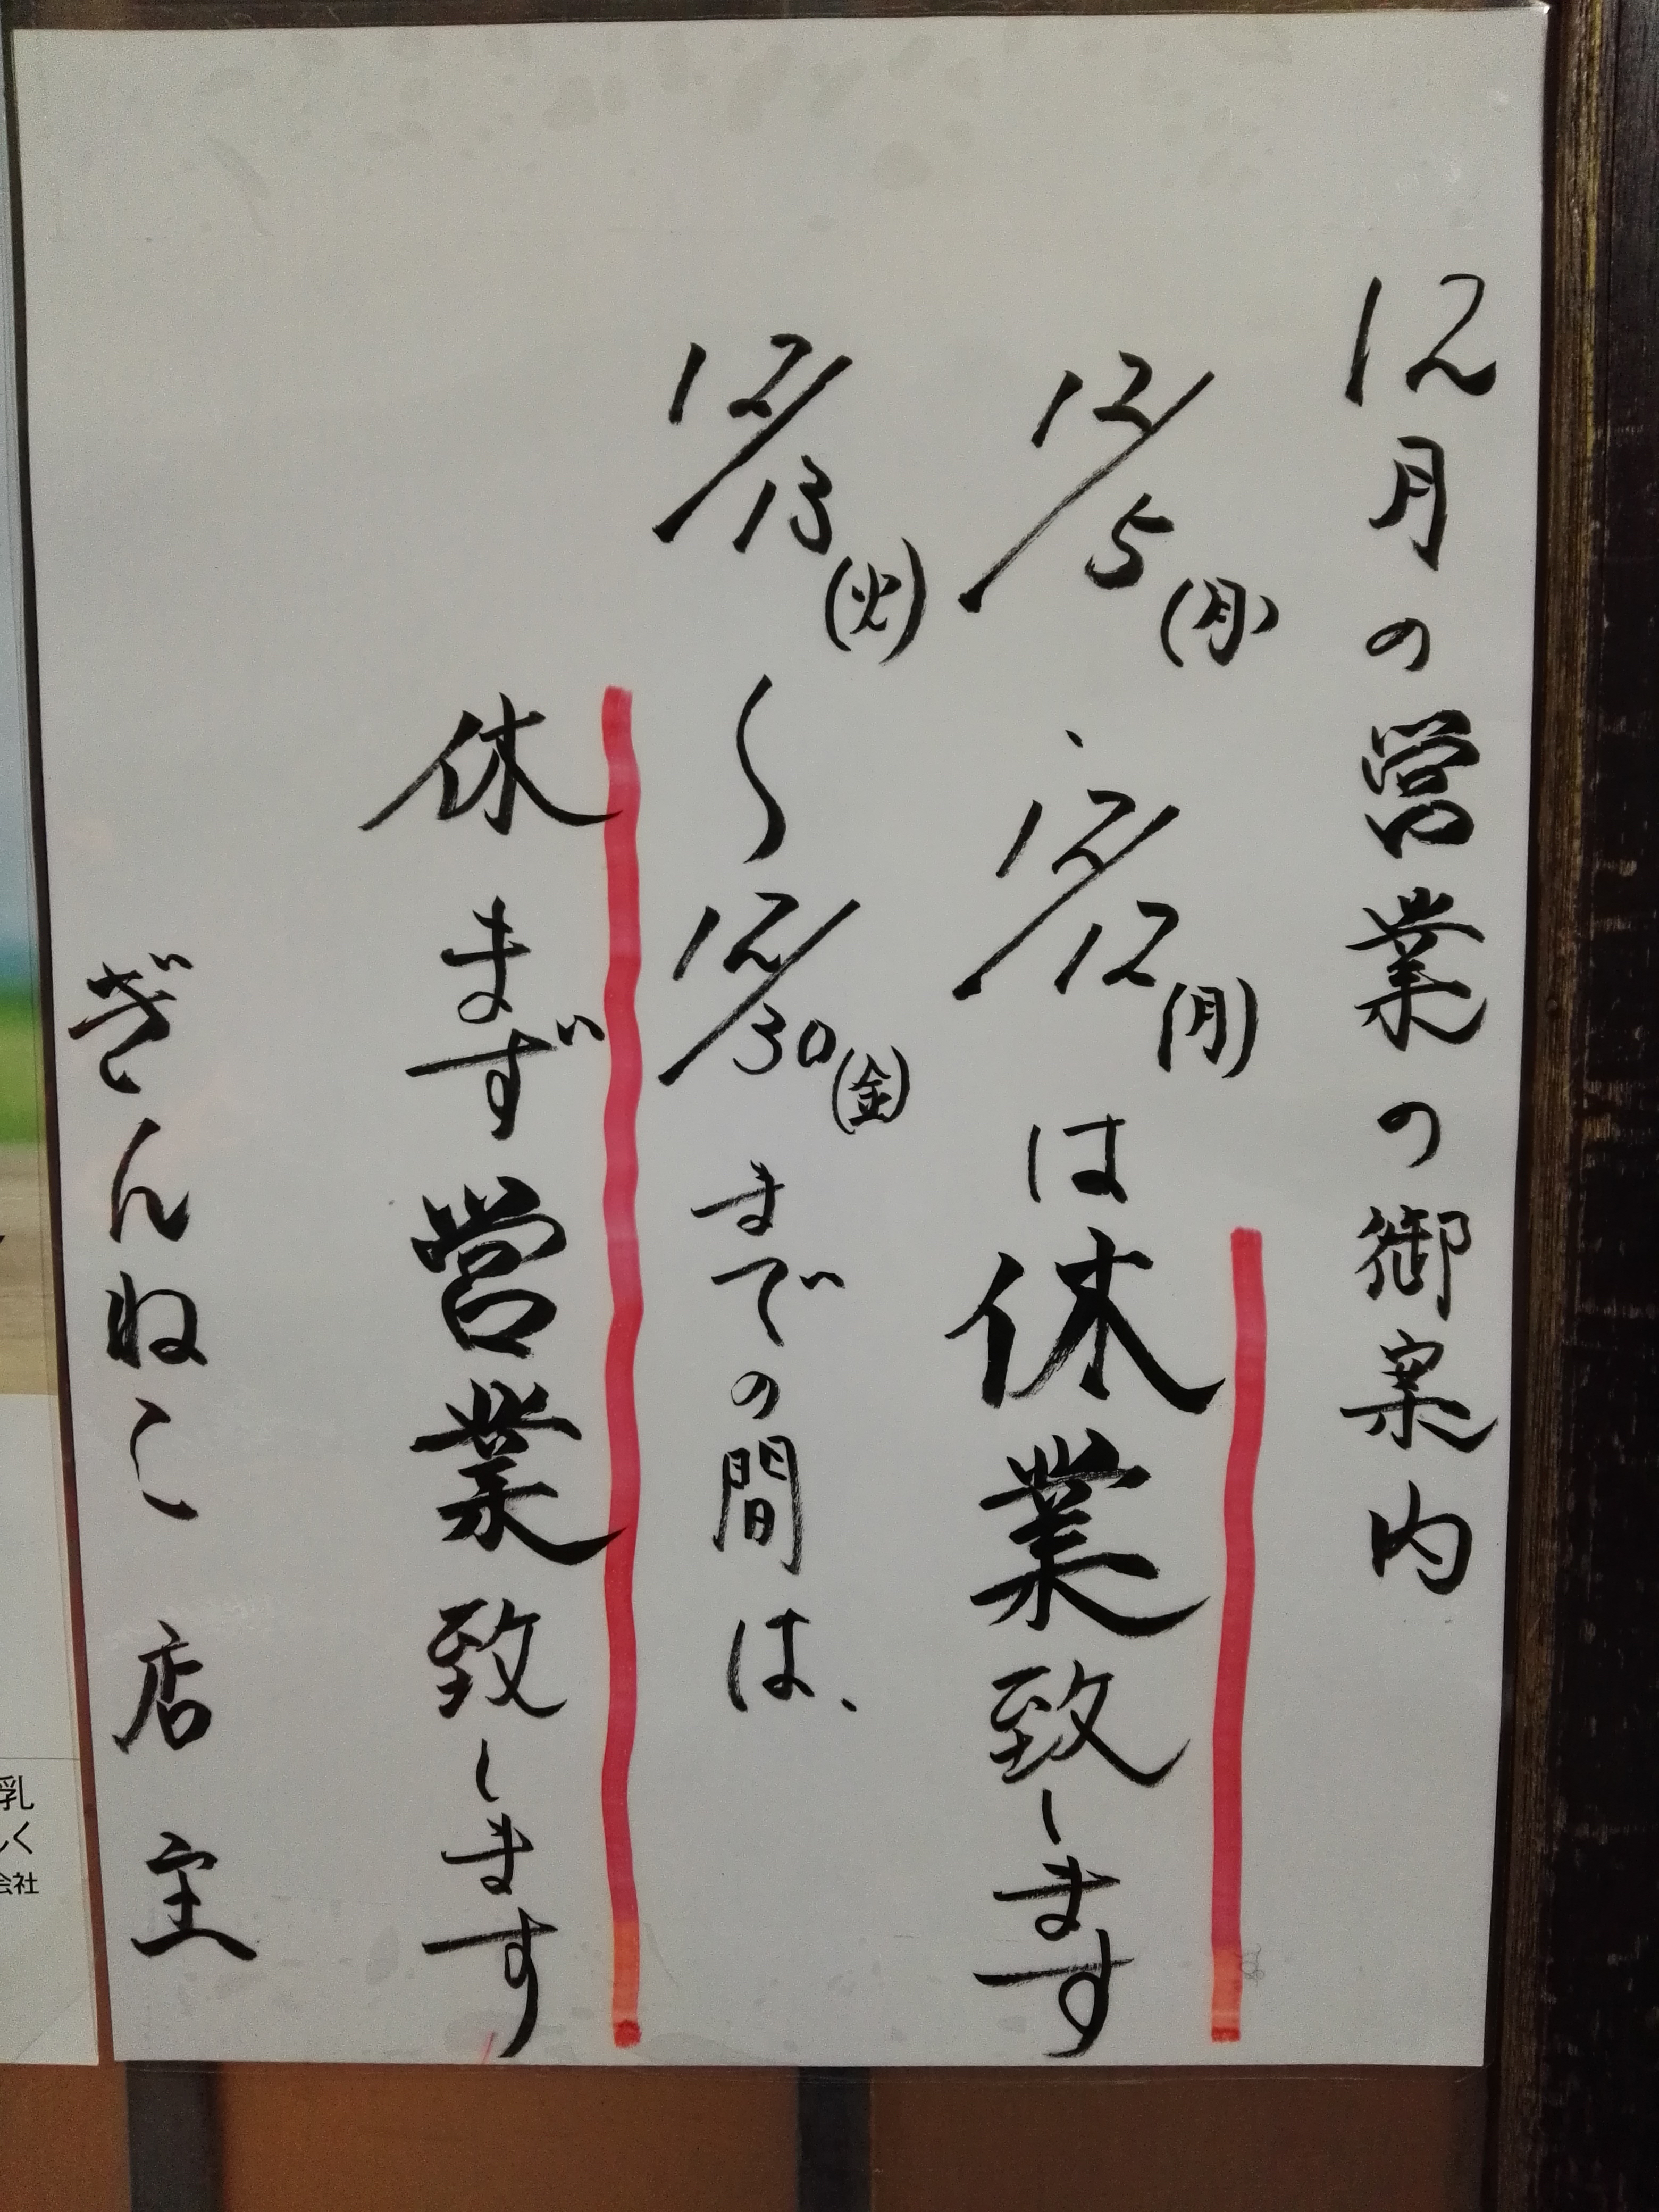 12月の営業の御案内
12/5(月)、12/12(月)は休業致します
12/13(火)〜12/30(金)までの間は、
休まず営業致します
ぎんねこ 店主
乳
しく
会社